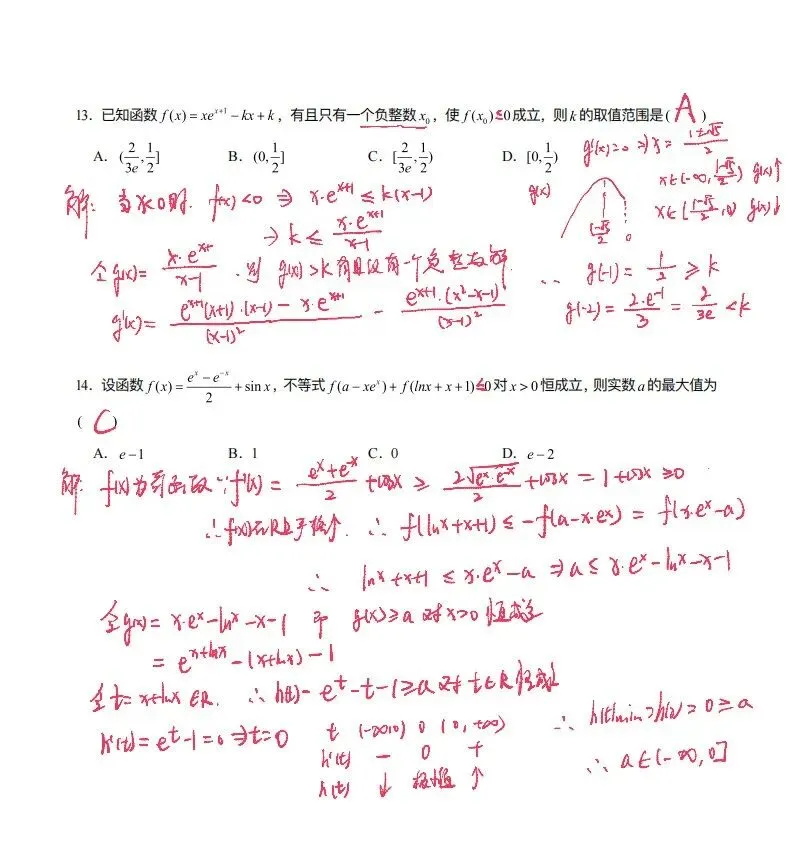 13. 已知函数 f(x) = xe^{x+1} − kx + k，有且只有一个负整数 x₀，使 f(x₀) ≤ 0 成立，则 k 的取值范围是 ( A )
A. (2/(3e), 1/2]    B. (0, 1/2]    C. [2/(3e), 1/2)    D. [0, 1/2)
g'(x)=0 ⇒ x = (1±√5)/2
x∈(-∞, (1-√5)/2) g(x)↑
x∈[(1-√5)/2, 0) g(x)↓
g(x)
(1-√5)/2    0
解: 当x<0时. f(x)<0 ⇒ x·e^{x+1} ≤ k(x-1)
⇒ k ≤ x·e^{x+1}/(x-1)
令g(x) = x·e^{x+1}/(x-1) . 则 g(x)>k 有且仅有一个负整数解.
g'(x) = (e^{x+1}(x+1)·(x-1) − x·e^{x+1})/(x-1)² − e^{x+1}·(x²-x-1)/(x-1)²
∴ g(-1) = 1/2 ≥ k
g(-2) = 2·e^{-1}/3 = 2/(3e) < k
14. 设函数 f(x) = (e^x − e^{-x})/2 + sin x，不等式 f(a − xe^x) + f(lnx + x + 1) ≤ 0 对 x > 0 恒成立，则实数 a 的最大值为
( C )
A. e − 1    B. 1    C. 0    D. e − 2
解. f(x)为奇函数 ∵ f'(x) = (e^x+e^{-x})/2 + cosx ≥ 2√(e^x·e^{-x})/2 + cosx = 1+cosx ≥ 0
∴ f(x)在R上单增↑. ∴ f(lnx+x+1) ≤ -f(a-x·e^x) = f(x·e^x-a)
∴ lnx+x+1 ≤ x·e^x-a ⇒ a ≤ x·e^x-lnx-x-1
令g(x) = x·e^x-lnx-x-1 即 g(x)≥a 对x>0 恒成立
= e^{x+lnx} - (x+lnx) - 1
令t = x+lnx ∈R. ∴ h(t) = e^t-t-1 ≥ a 对 t∈R 恒成立
h'(t) = e^t-1 = 0 ⇒ t=0
t (-∞,0) 0 (0,+∞)
h'(t) − 0 +
h(t) ↓ 极值 ↑
∴ h(t)min = h(0) = 0 ≥ a
∴ a∈(-∞,0]